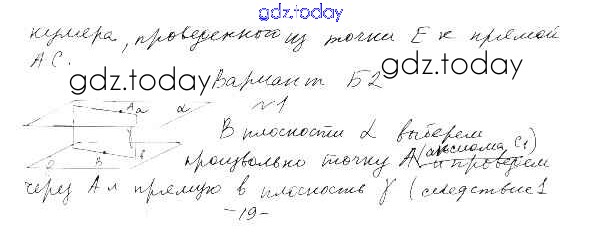 gdz.today
куляра, проведенного из точки E к прямой
AC.
gdz.today Вариант Б2 gdz.today
№1
A a α
γ
β B b
В плоскости α выберем
произвольно точку A (аксиома C1) и проведем
через A и прямую в плоскость γ (следствие 1
-19-